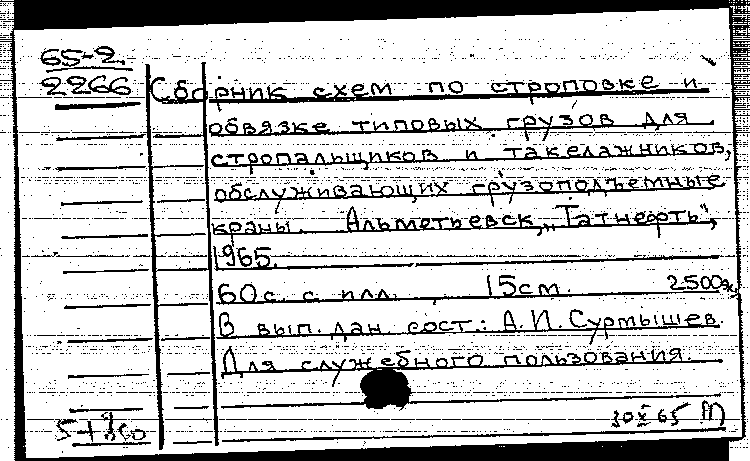 65-2.
2266 Сборник схем по строповке и
обвязке типовых грузов для
стропальщиков и такелажников,
обслуживающих грузоподъемные
краны. Альметьевск, „Татнефть",
1965.
60с. с илл. 15см. 2500э.
В вып. дан. сост.: А.И. Суртышев.
Для служебного пользования.
30 X 65